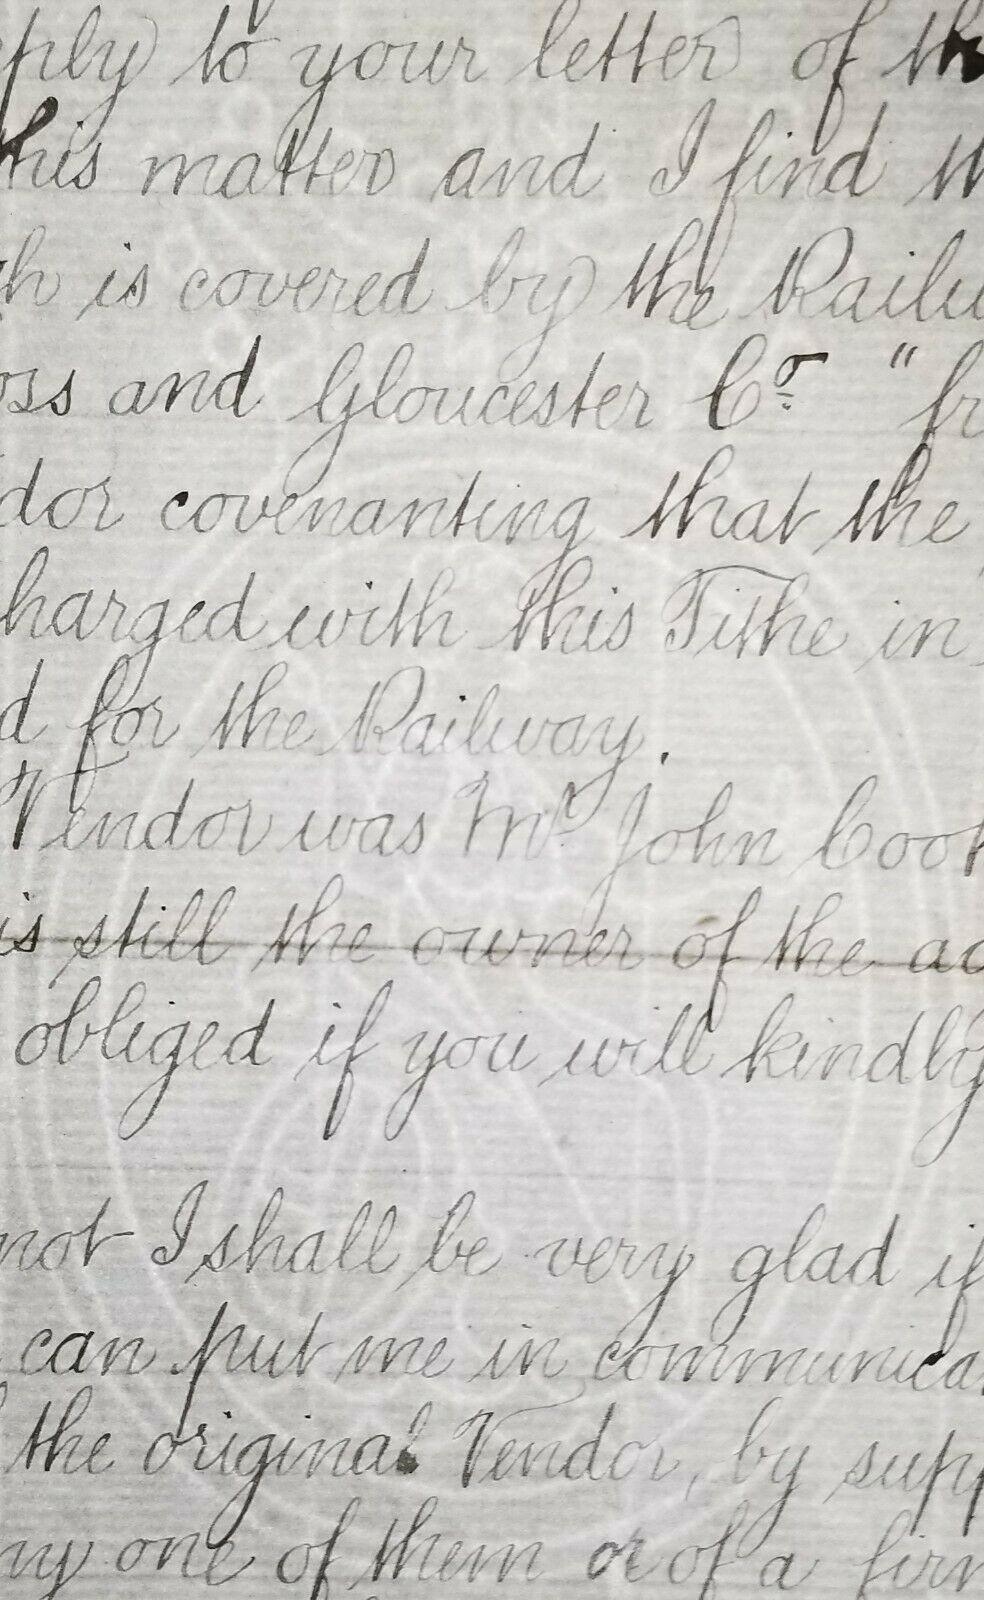 ply to your letter of th
this matter and I find th
h is covered by the Railw
oss and Gloucester Co "fr
dor covenanting that the
harged with this Tithe in
d for the Railway.
Vendor was Mr John Cook
is still the owner of the ad
obliged if you will kindly
not I shall be very glad if
can put me in communica
the original Vendor, by supp
ny one of them or of a firm